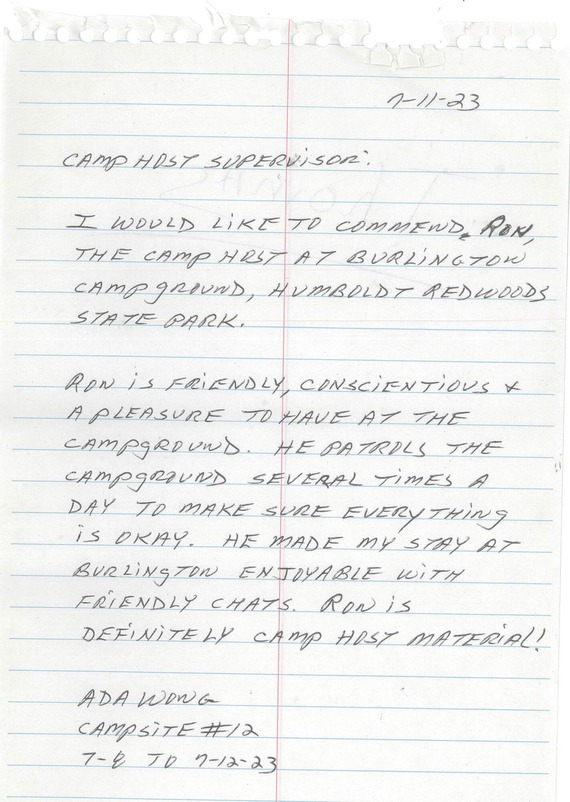 7-11-23
CAMP HOST SUPERVISOR:
I WOULD LIKE TO COMMEND RON,
THE CAMP HOST AT BURLINGTON
CAMPGROUND, HUMBOLDT REDWOODS
STATE PARK.
RON IS FRIENDLY, CONSCIENTIOUS &
A PLEASURE TO HAVE AT THE
CAMPGROUND. HE PATROLS THE
CAMPGROUND SEVERAL TIMES A
DAY TO MAKE SURE EVERYTHING
IS OKAY. HE MADE MY STAY AT
BURLINGTON ENJOYABLE WITH
FRIENDLY CHATS. RON IS
DEFINITELY CAMP HOST MATERIAL!
ADA WONG
CAMPSITE #12
7-8 TO 7-12-23